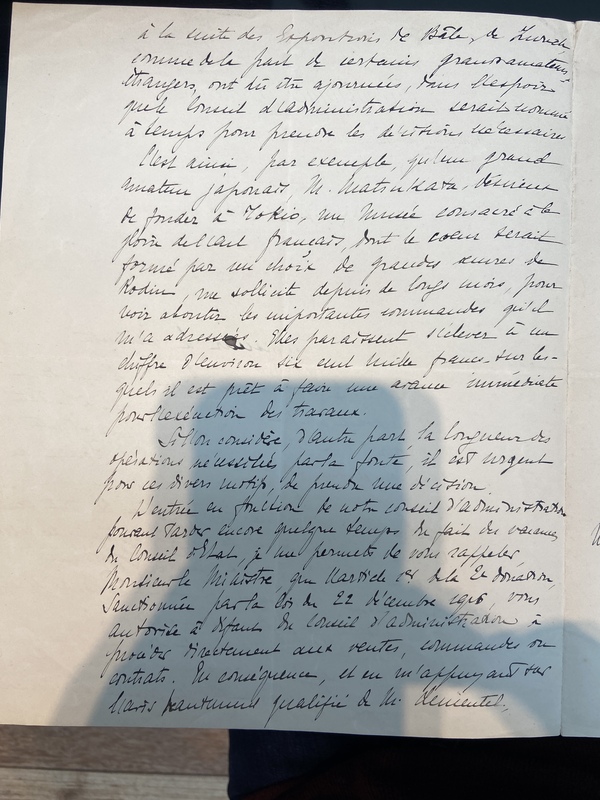 à la suite des Expositions de Bâle, de Zurich,
comme de la part de certains grands amateurs
étrangers, ont dû être ajournées, dans l'espoir
que le Conseil d'administration serait nommé
à temps pour prendre les décisions nécessaires
C'est ainsi, par exemple, qu'un grand
amateur japonais, M. Matsukata, désireux
de fonder à Tokio, un Musée consacré à la
gloire de l'art français, dont le cœur serait
formé par un choix de grandes œuvres de
Rodin, me sollicite depuis de longs mois, pour
voir aboutir les importantes commandes qu'il
m'a adressées. Elles paraissent s'élever à un
chiffre d'environ six cent mille francs sur les-
quels il est prêt à faire une avance immédiate
pour l'exécution des travaux.
Si l'on considère, d'autre part, la longueur des
opérations nécessitées par la fonte, il est urgent
pour ces divers motifs, de prendre une décision.
L'entrée en fonction de notre conseil d'administration
pouvant tarder encore quelque temps du fait des vacances
du Conseil d'Etat, je me permets de vous rappeler
Monsieur le Ministre, que l'article 1er de la 2e donation,
sanctionnée par la loi du 22 décembre 1916, vous
autorise à défaut du Conseil d'administration à
procéder directement aux ventes, commandes ou
contrats. En conséquence, et en m'appuyant sur
l'avis hautement qualifié de M. Clémentel,